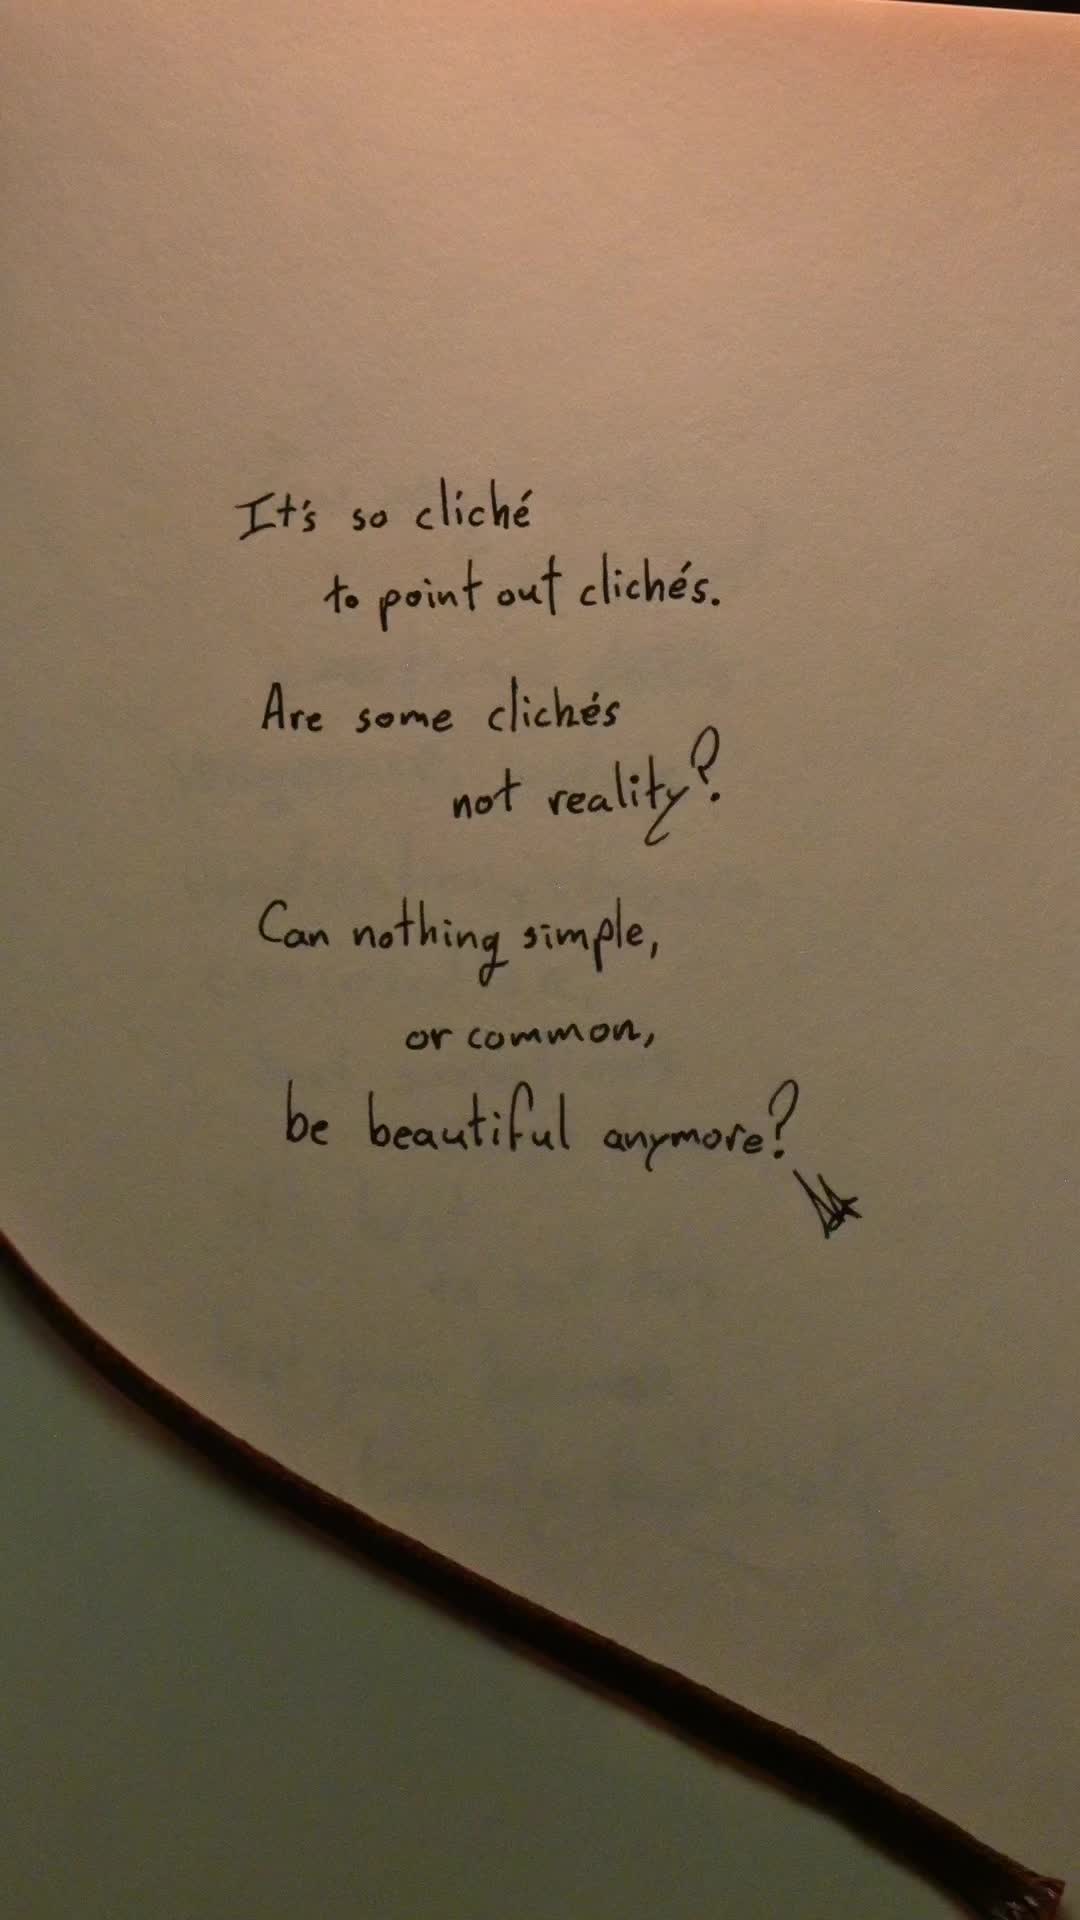 It's so cliché
to point out clichés.
Are some clichés
not reality?
Can nothing simple,
or common,
be beautiful anymore?